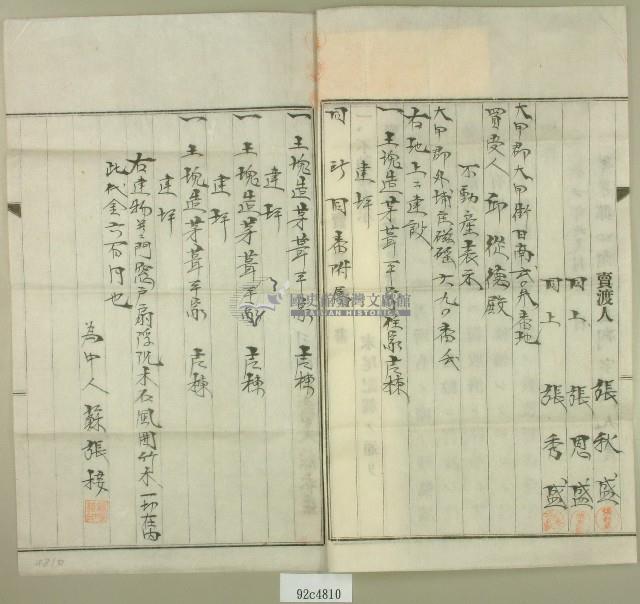 賣渡人 張秋盛
同上 張恩盛
同上 張秀盛
大甲郡大甲街日南
買受人 邱從德殿
不動産表示
大甲郡外埔庄磁磘六九〇番
右地上ニ建設
一土塊造茅葺平家住家壹棟
建坪
同所同番附属
一土塊造茅葺平家 壹棟
建坪
一土塊造茅葺平家 壹棟
建坪
一土塊造茅葺平家 壹棟
建坪
右建物並門窓戶扇浮沉木石風圍竹木一切在內
此代金六百円也
為中人 蘇張接
國史館臺灣文獻館
TAIWAN HISTORICA
92c4810